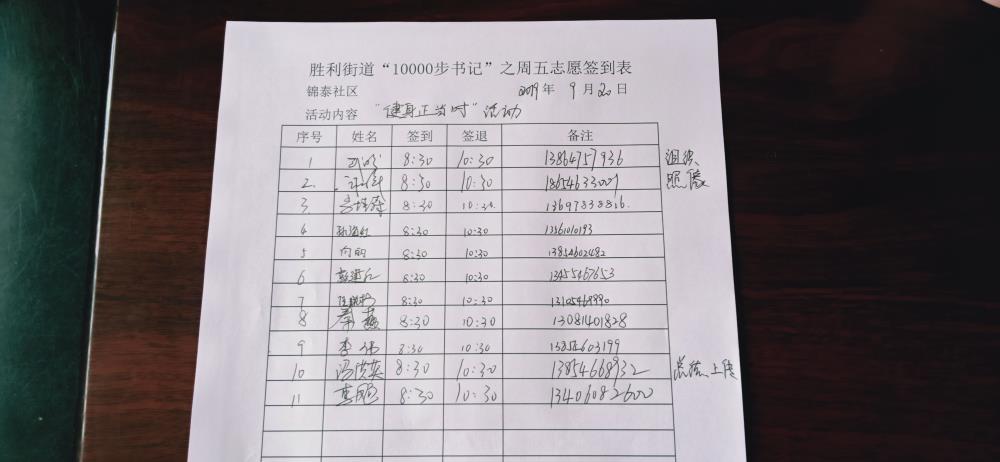 胜利街道“10000步书记”之周五志愿签到表
锦泰社区 2019年 9月20日
活动内容 “健身正当时”活动
序号 姓名 签到 签退 备注
1 8:30 10:30 13864757936 组织、
2. 8:30 10:30 18654633009 照像
3. 8:30 10:30 13697838816.
4 8:30 10:30 13561010193
5 向明 8:30 10:30 13854602482
6 8:30 10:30 13455467653
7 8:30 10:30 13105469990
8 秦燕 8:30 10:30 13081401828
9 李伟 8:30 10:30 15854603199
10 冯洪英 8:30 10:30 13854668932 总结、上传
11 8:30 10:30 13406082600